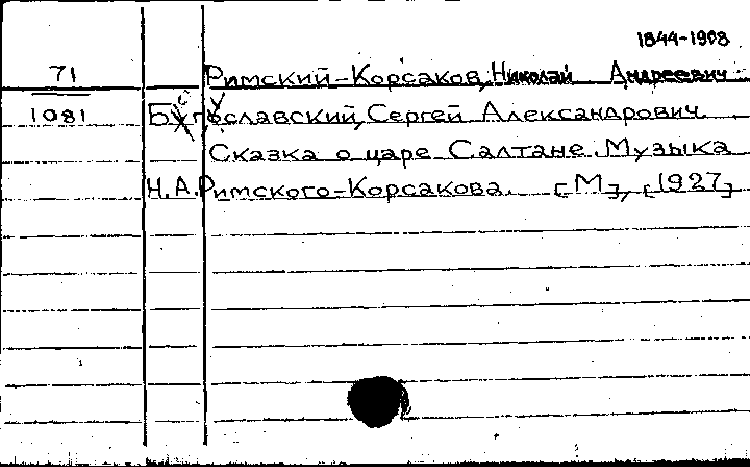 1844-1908
71 Римский-Корсаков, Николай Андреевич
1081 Бугославский, Сергей Александрович
Сказка о царе Салтане. Музыка
Н.А. Римского-Корсакова. [М], [1927]